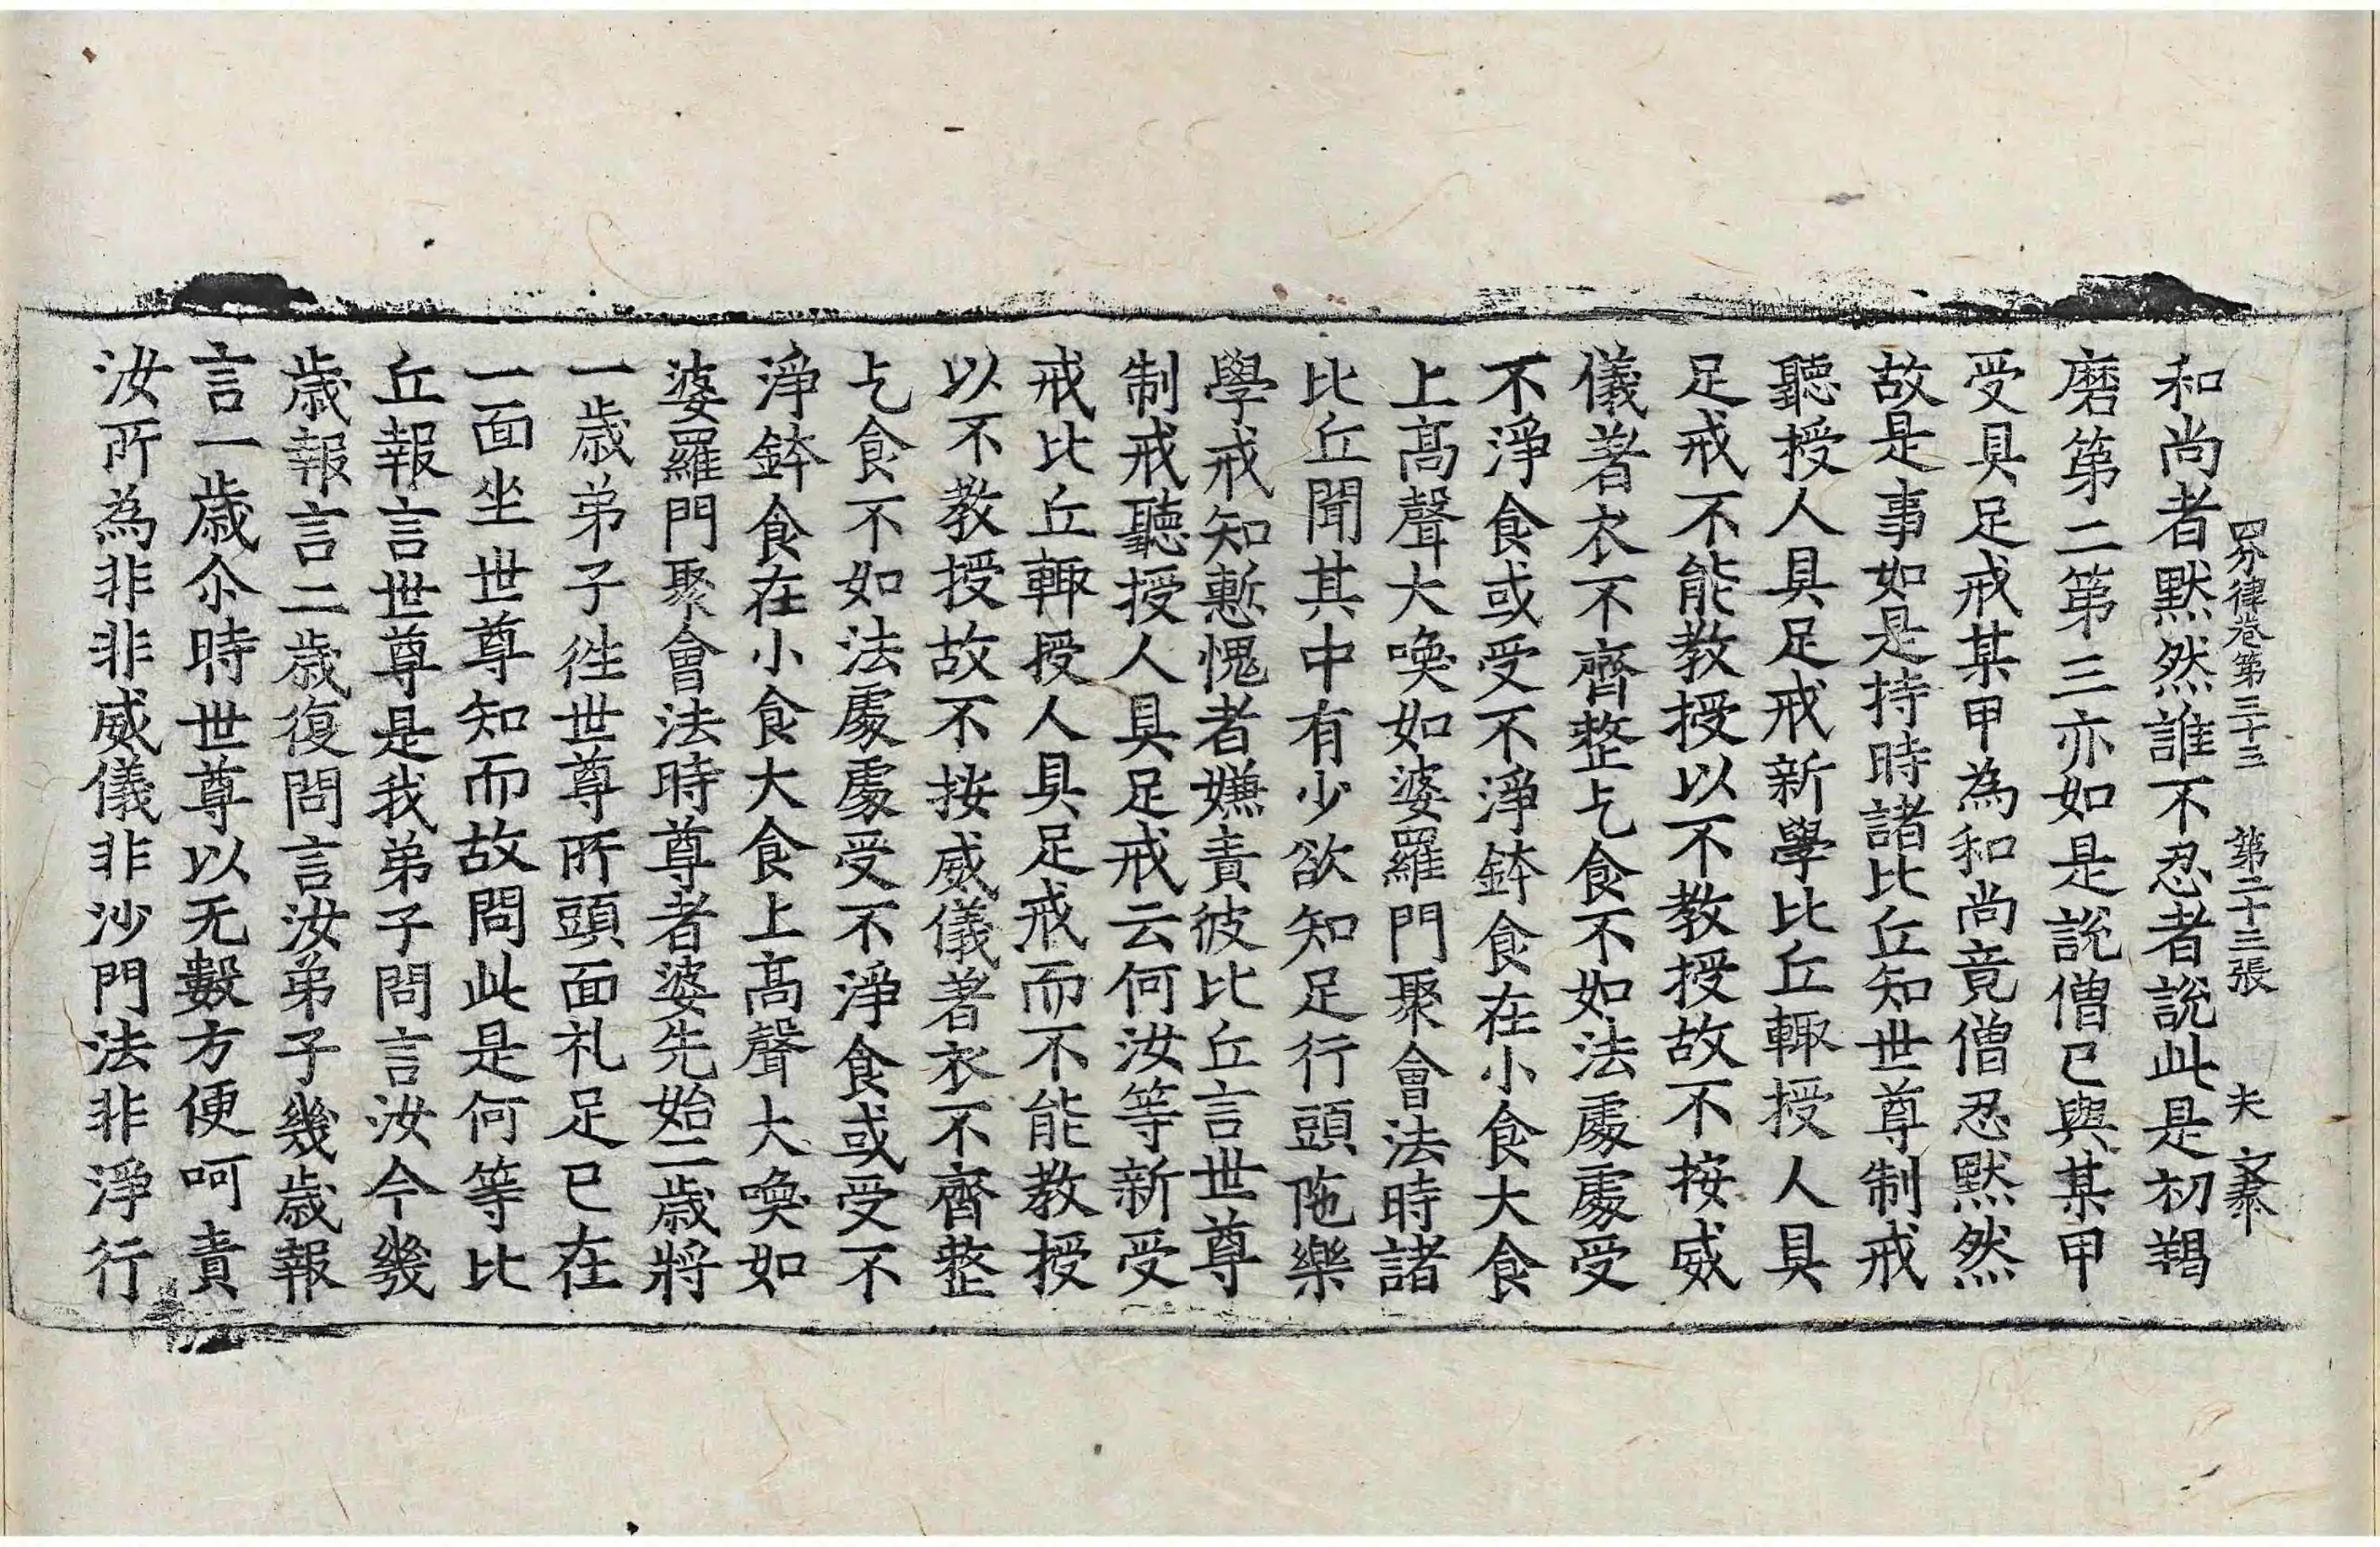 四分律卷第三十三 第二十三張 夫 叅
和尚者黙然誰不忍者說此是初羯
磨第二第三亦如是說僧已與某甲
受具足戒某甲為和尚竟僧忍黙然
故是事如是持時諸比丘知世尊制戒
聽授人具足戒新學比丘輙授人具
足戒不能教授以不教授故不按威
儀著衣不齊整乞食不如法處處受
不淨食或受不淨鉢食在小食大食
上髙聲大喚如婆羅門聚會法時諸
比丘聞其中有少欲知足行頭陁樂
學戒知慙愧者嫌責彼比丘言世尊
制戒聽授人具足戒云何汝等新受
戒比丘輙授人具足戒而不能教授
以不教授故不按威儀著衣不齊整
乞食不如法處處受不淨食或受不
淨鉢食在小食大食上髙聲大喚如
婆羅門聚會法時尊者婆先始二歳將
一歳弟子徃世尊所頭面礼足已在
一面坐世尊知而故問此是何等比
丘報言世尊是我弟子問言汝今幾
歳報言二歳復問言汝弟子幾歳報
言一歳尒時世尊以无數方便呵責
汝所為非非威儀非沙門法非淨行